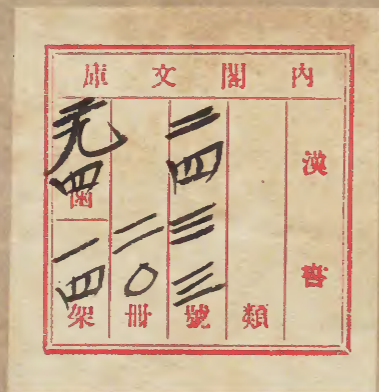 內閣文庫
漢書
類
二四三三號
二〇冊
四函
一四架